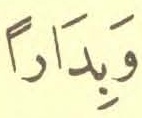 وَبِدَاراً